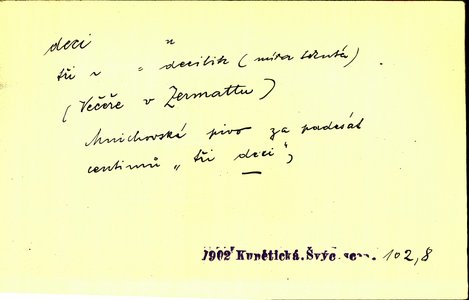 deci n
tři ~ = decilitr (míra tekutá)
(Večeře v Zermattu)
Mnichovské pivo za padesát
centimů „tři deci",
1902 Kunětická. Švýc. 102,8